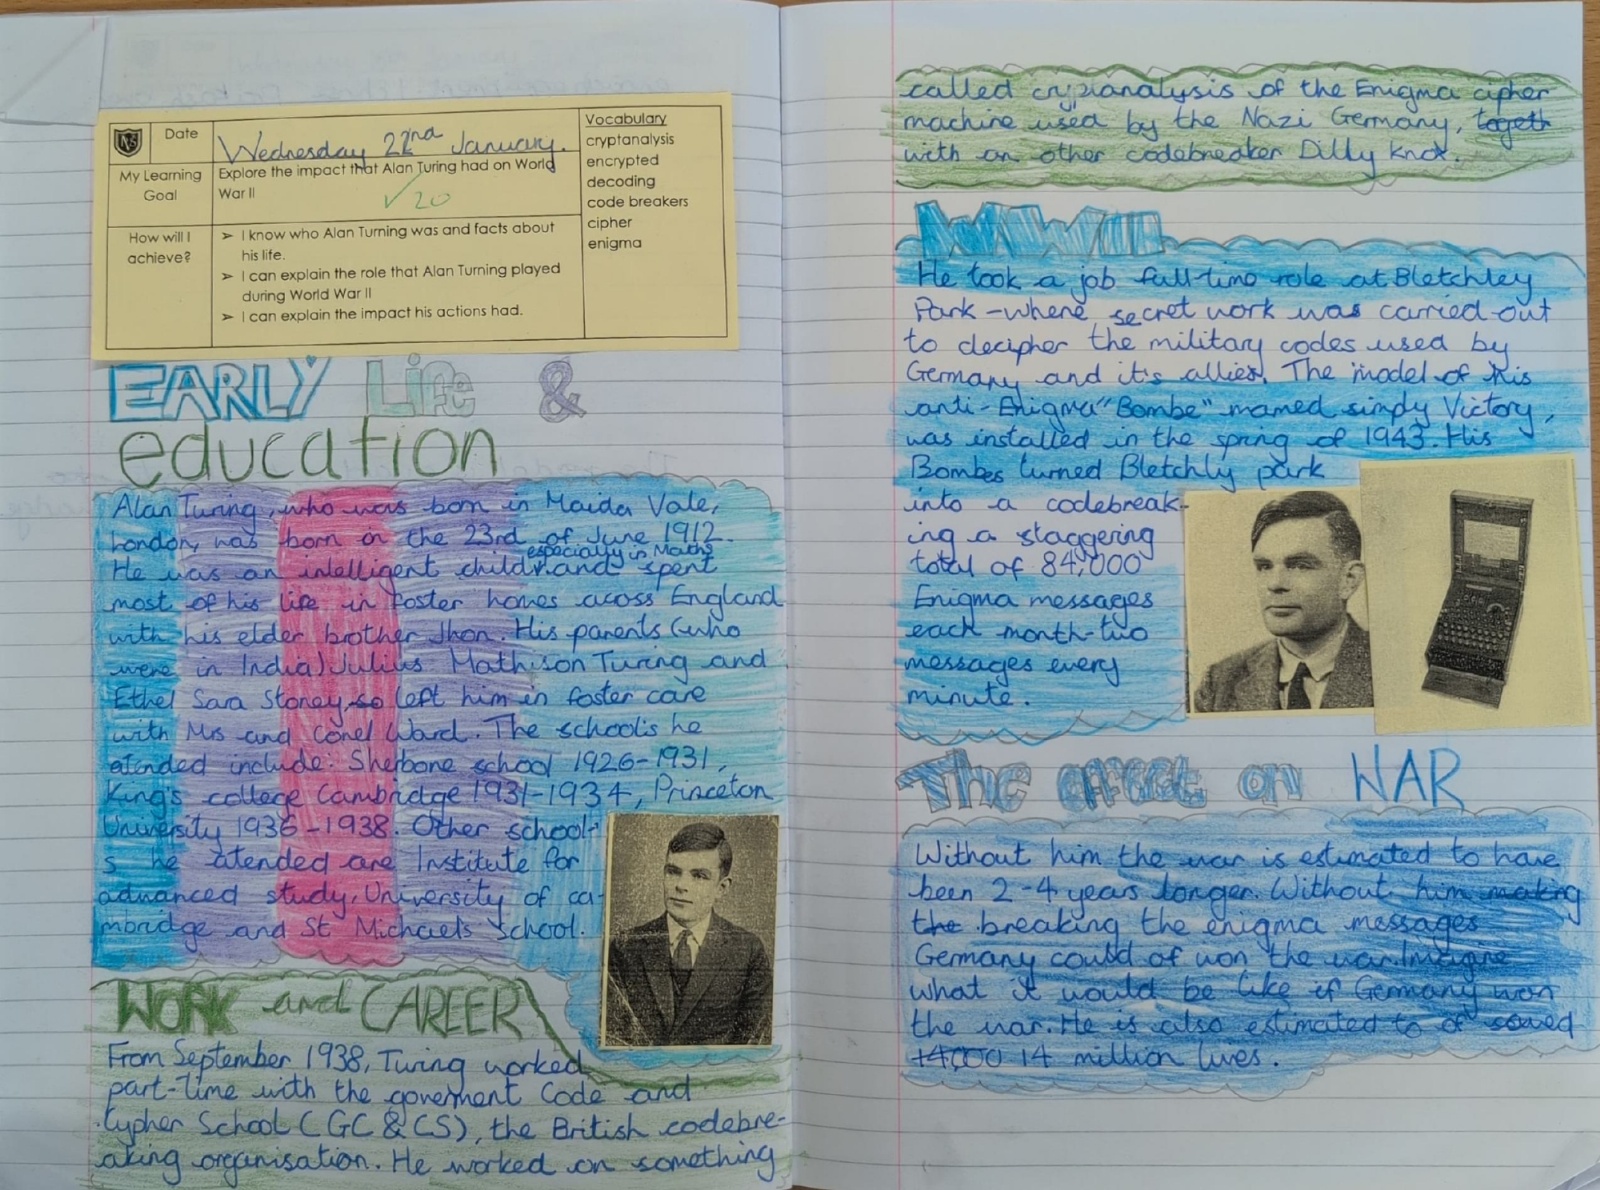 Date
Wednesday 22nd January.
My Learning Goal
Explore the impact that Alan Turing had on World War II
✓20
How will I achieve?
➢ I know who Alan Turning was and facts about
his life.
➢ I can explain the role that Alan Turning played
during World War II
➢ I can explain the impact his actions had.
Vocabulary
cryptanalysis
encrypted
decoding
code breakers
cipher
enigma
EARLY Life &
education
Alan Turing, who was born in Maida Vale,
London, was born on the 23rd of June 1912.
especially in Maths
He was an intelligent child and spent
most of his life in foster homes acoss England
with his elder brother Jhon. His parents (who
were in India) Julius Mathison Turing and
Ethel Sara Stoney, so left him in foster care
with Mrs and Conel Ward. The school's he
atended include: Sherbone school 1926-1931,
King's college Cambridge 1931-1934, Princeton
University 1936-1938. Other school-
s he atended are Institute for
advanced study, University of ca-
mbridge and St Michaels school.
WORK and CAREER
From September 1938, Turing worked
part-time with the goverment Code and
Cypher School (GC & CS), the British codebre-
aking organisation. He worked on something
called crypianalysis of the Enigma cipher
machine used by the Nazi Germany, togeth
with an other codebreaker Dilly Knox.
WWII
He took a job full-time role at Bletchley
Park - where secret work was carried out
to decipher the military codes used by
Germany and it's allies. The model of his
anti-Enigma "Bombe" mamed simply Victory,
was installed in the spring of 1943. His
Bombes turned Bletchly park
into a codebreak-
ing a staggering
total of 84,000
Enigma messages
each month-two
messages every
minute.
The effect on WAR
Without him the war is estimated to have
been 2-4 years longer. Without him making
the breaking the enigma messages
Germany could of won the war. Imagine
what it would be like if Germany won
the war. He is also estimated to of saved
14,000 14 million lives.